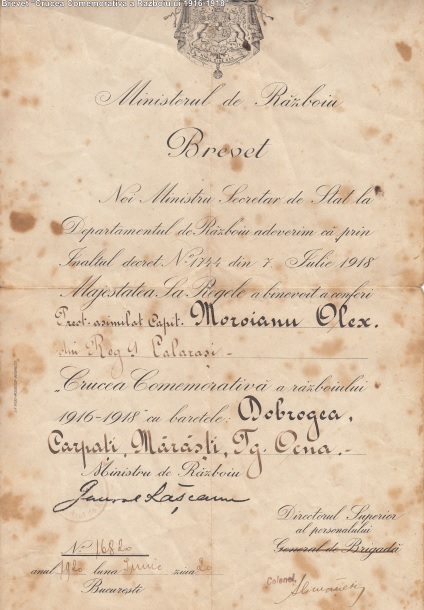 Brevet Crucea Comemorativa a Razboiului 1916-1918
Ministerul de Războiu
Brevet
Noi Ministru Secretar de Stat la
Departamentul de Războiu adeverim că prin
Inaltul decret No. 1744 din 7 Iulie 1918
Majestatea Sa Regele a binevoit a conferi
Preot-asimilat Capit. Moroianu Olex.
din Reg 9 Calarasi -
Crucea Comemorativă a războiului
1916-1918 cu baretele: Dobrogea,
Carpați, Mărăști, Tg. Ocna. -
Ministru de Războiu
General Rășcanu
Directorul Superior
al personalului
General de Brigadă
Colonel
No.
anul 1920 luna Iunie ziua
București